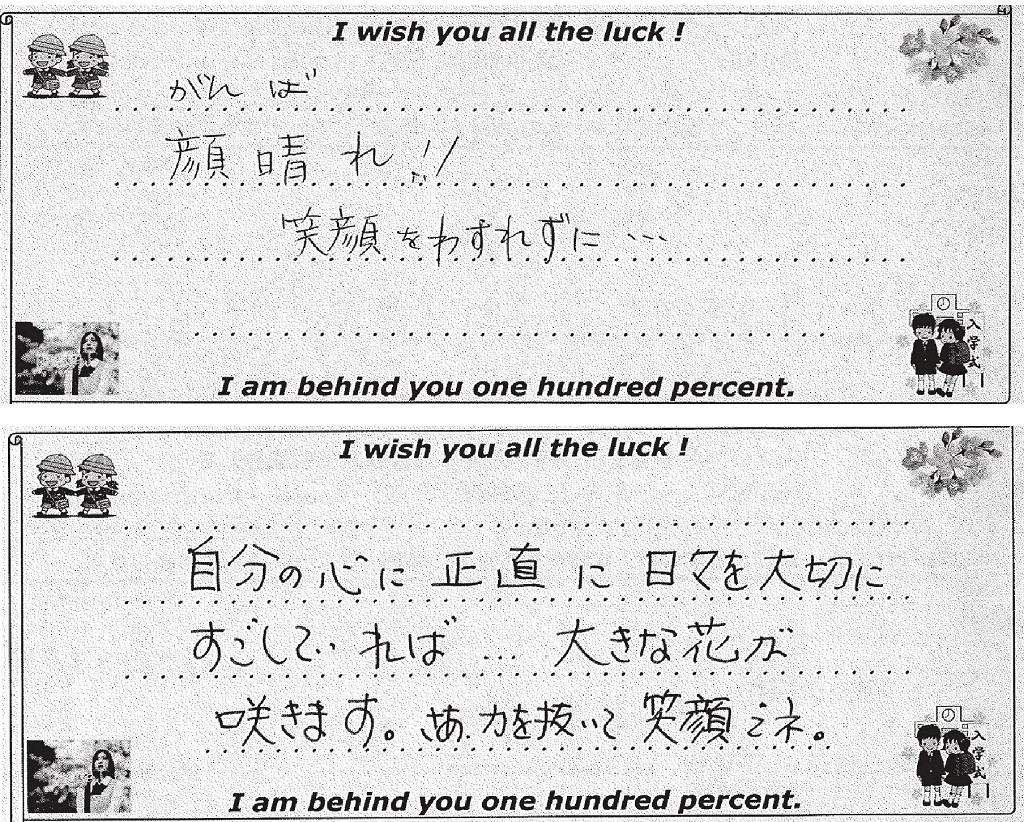 I wish you all the luck !
がん ば
顔晴れ!!
笑顔をわすれずに…
入学式
I am behind you one hundred percent.
I wish you all the luck !
自分の心に正直に日々を大切に
すごしていれば… 大きな花が
咲きます。さあ、力を抜いて笑顔でネ。
入学式
I am behind you one hundred percent.